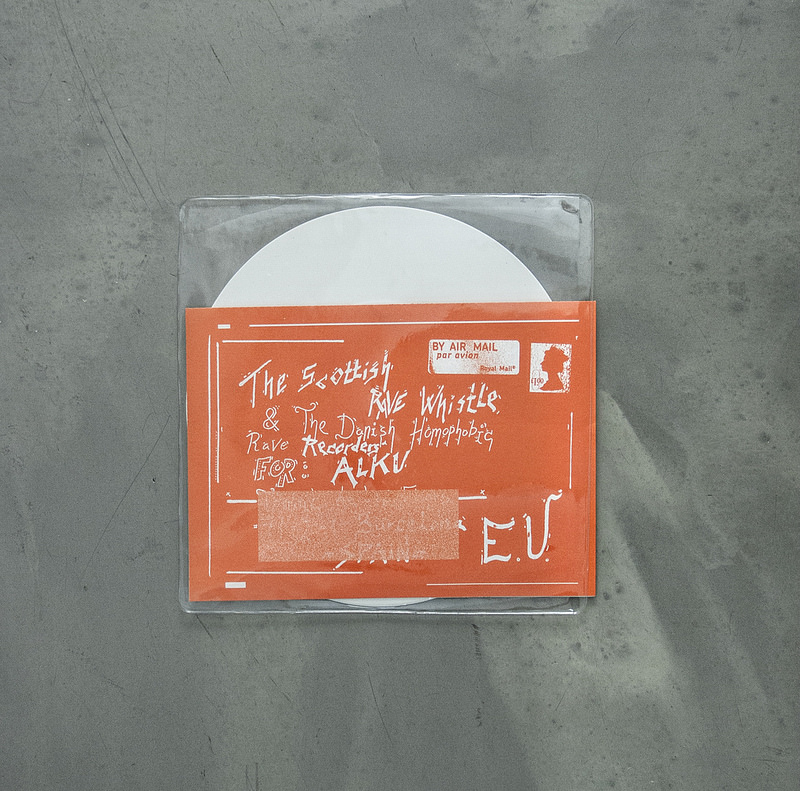 BY AIR MAIL
par avion
Royal Mail®
£1.00
The Scottish
RAVE Whistle
& The Danish Homophobic
Rave Recorders
FOR: ALKU
Barcelona
SPAIN
E.U.